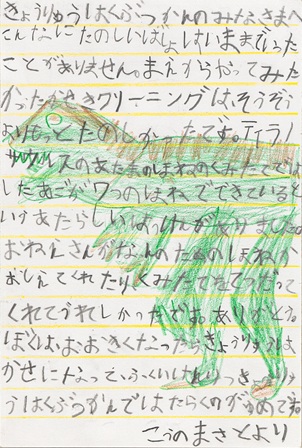 きょうりゅうはくぶつかんのみなさまへ
こんなにたのしいばしょはいままでいった
ことがありません。まえからやってみた
かったかせきクリーニングは、そうぞう
よりもっとたのしかったです。ティラノ
サウルスのあたまのほねのくみたてでは
したあごが7つのほねでできていると
いうあたらしいはっけんがありました。
おねえさんがなんのためのほねか
おしえてくれたりくみたてをてつだって
くれてうれしかったです。ありがとう
ぼくは、おおきくなったらきょうりゅうは
かせになって、ふくいけんりつき
うはくぶつかんではたらくのがゆめです。
こうのまさとより